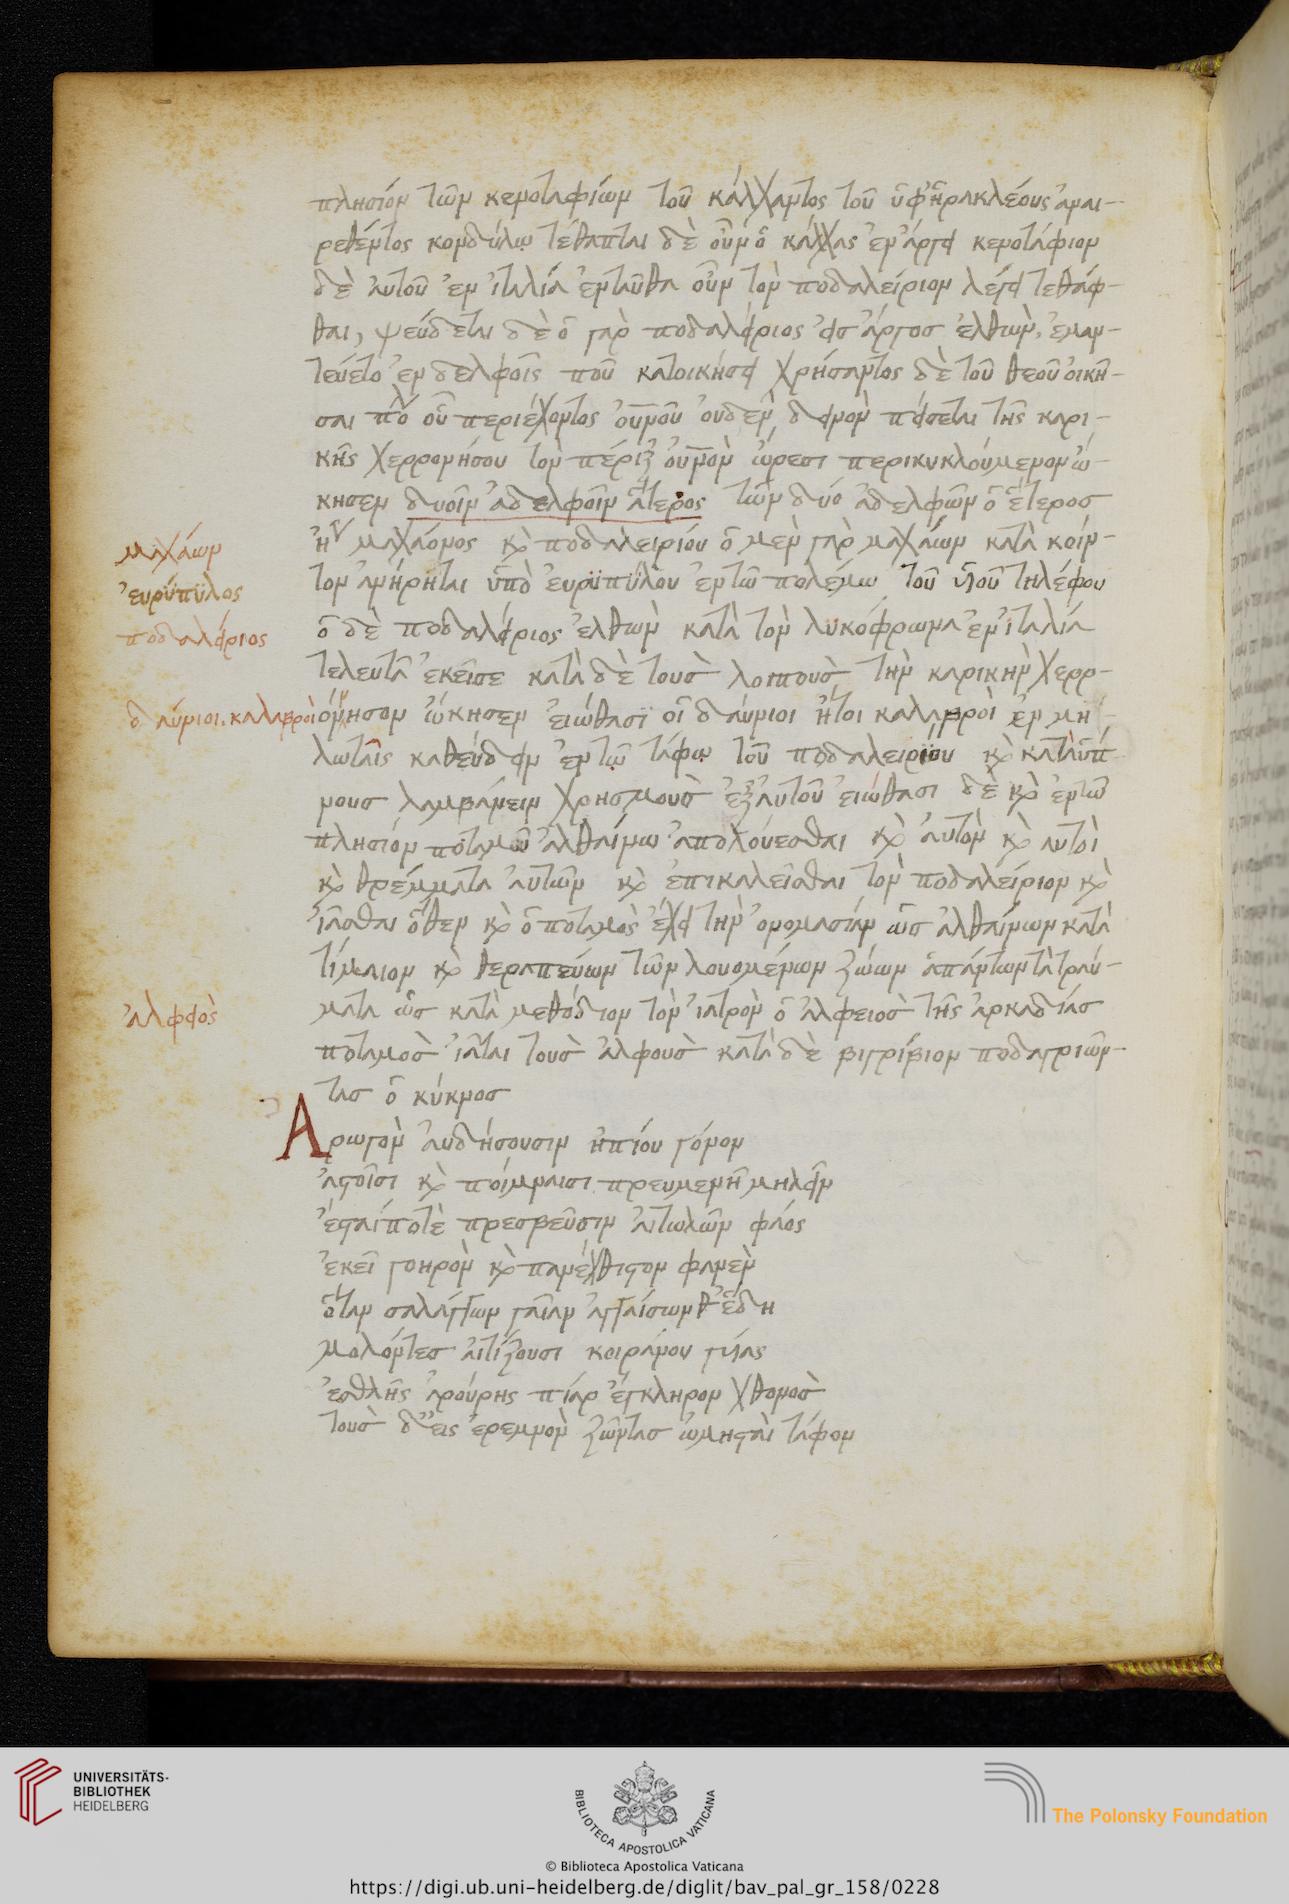 πλησίον τῶν κενοταφίων τοῦ κάλχαντος τοῦ ὑφ' ἡρακλέους ἀναι-
ρεθέντος κονδύλῳ τέθαπται δὲ οὖν ὁ κάλχας ἐν ἄργει κενοτάφιον
δὲ αὐτοῦ ἐν ἰταλία ἐνταῦθα οὖν τὸν ποδαλείριον λέγει τεθάφ-
θαι, ψεύδεται δὲ ὁ γὰρ ποδαλείριος εἰς ἄργος ἐλθὼν, ἐμαν-
τεύετο ἐν δελφοῖς ποῦ κατοικήσει χρήσαντος δὲ τοῦ θεοῦ οἰκῆ-
σαι οὗ περιέχοντος οὐνοῦ οὐδεν δεινὸν πείσεται τῆς καρι-
κῆς χερρονήσου τὸν πέριξ οὐνὸν ὤρεσι περικυκλούμενον ὤ-
κησεν δυοῖν ἀδελφοῖν ἅτερος τῶν δύο ἀδελφῶν ὁ ἕτερος
μαχάονος καὶ ποδαλειρίου ὁ μὲν γὰρ μαχάων κατὰ κοίν-
τον ἀνήρηται ὑπὸ εὐρϋπΰλου ἐν τῶ πολέμω τοῦ υἱοῦ τηλέφου
ὁ δὲ ποδαλείριος ἐλθὼν κατὰ τὸν λυκόφρωνα ἐν ἰταλία
τελευτᾶ ἐκεῖσε κατὰ δὲ τοὺς λοιποὺς τὴν καρικὴν χερρ-
όνησον ὤκησεν εἰώθασϊ οἱ δαύνιοι ἤτοι καλαβροὶ ἐν μη-
λωταῖς καθεύδειν ἐν τῷ τάφῳ τοῦ ποδαλειρίου καὶ κατὰ ὕπ-
νους λαμβάνειν χρησμοὺς ἐξ αὐτοῦ εἰώθασι δὲ καὶ ἐν τῶ
πλησίον ποταμῶ ἀλθαίνω ἀπολούεσθαι καὶ αὐτὸν καὶ αὐτοὶ
καὶ θρέμματα αὐτῶν καὶ ἐπικαλεῖσθαι τὸν ποδαλείριον καὶ
ἰᾶσθαι ὅθεν καὶ ὁ ποταμὸς ἔχει τὴν ὀνομασίαν ὡς ἀλθαίνων κατὰ
τίμαιον καὶ θεραπεύων τῶν λουομένων ζώων ἁπάντων τὰ τραύ-
ματα ὡς κατὰ μεθόδιον τὸν ἰατρὸν ὁ ἀλφειὸς τῆς ἀρκαδίας
ποταμὸς ἰᾶται τοὺς ἀλφοὺς κατὰ δὲ βιγρίβιον ποδαγριῶν-
τας ὁ κύκνος
Ἀρωγὸν αὐδήσουσιν ἠπίου γόνον
ἀστοῖσι καὶ ποίμναισι πρευμενῆ μηλεῖν
ἔσται ποτὲ πρεσβεῦσιν αἰτωλῶν φάος
ἐκεῖ γοηρὸν καὶ πανέχθιστον φανὲν
ὅταν σαλάγγων γαῖαν ἀγγαίσων θ' ἕδη
μολόντες αἰτίζουσι κοιράνου γύας
ἐσθλῆς ἀρούρης πῖαρ ἔγκληρον χθονὸς
τοὺς δ' εἰς ἐρεμνὸν ζῶντας ὠμησταὶ τάφον
μαχάων
εὐρΰπϋλος
ποδαλείριος
δαύνιοι. καλαβροὶ
ἀλφειὸς
UNIVERSITÄTS-
BIBLIOTHEK
HEIDELBERG
BIBLIOTECA APOSTOLICA VATICANA
The Polonsky Foundation
© Biblioteca Apostolica Vaticana
https://digi.ub.uni-heidelberg.de/diglit/bav_pal_gr_158/0228